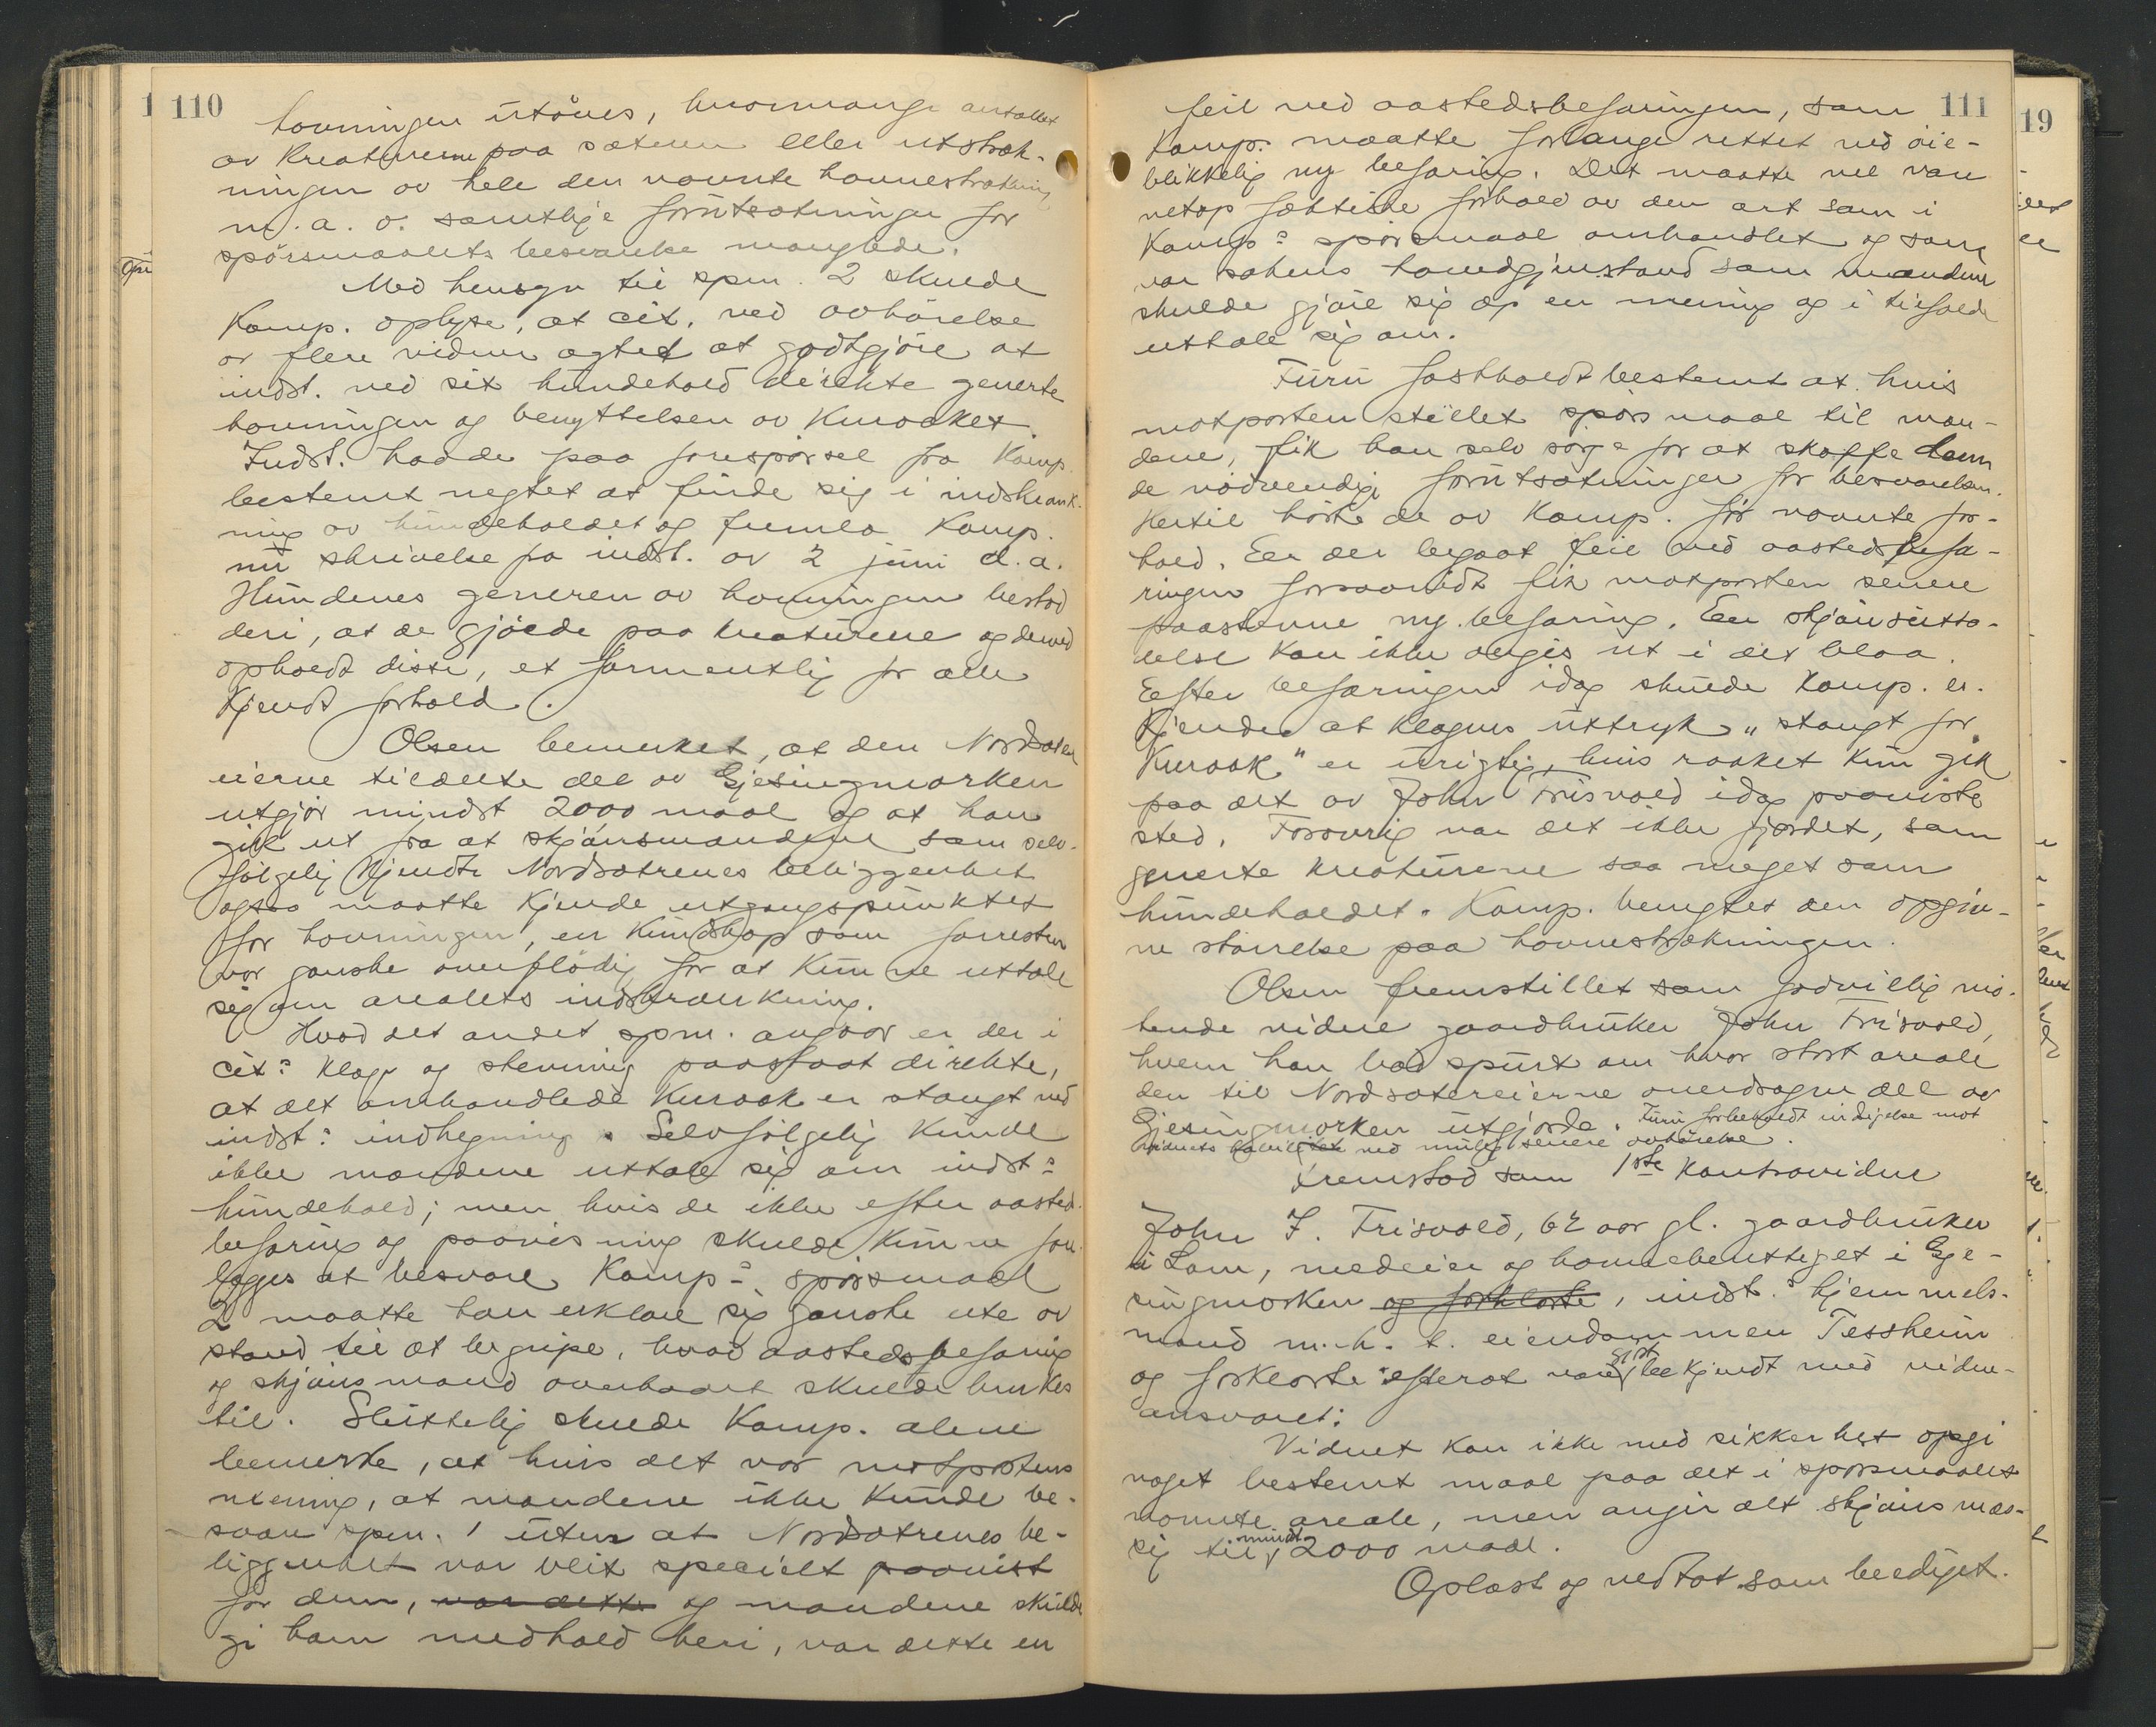 110
havningen utöves, hvormange antallet
av Kreaturerne paa sæteren eller utstræk-
ningen av hele den nævnte havnestrækning
m. a. o. samtlige forutsætninger for
spörsmaalets besvarelse manglede.
Med hensyn til spm. 2 skulde
Kamp. oplyse, at cit. ved avhörelse
av flere vidner agtet at godtgjöre at
indst. ved sit hundehold direkte generte
havningen og benyttelsen av Kuraaket.
Indst. hadde paa forespörsel fra Kamp.
bestemt negtet at finde sig i indskrænk-
ning av hundeholdet og fremla Kamp.
nu skrivelse fra indst. av 2 juni d. a.
Hundenes generen av havningen bestod
deri, at de gjöede paa kreaturene og derved
opholdt disse, et formentlig for alle
Kjendt forhold.
Olsen bemerket, at den Nordsæter
eierne tildelte del av Gjesingmorken
utgjör mindst 2000 maal og at han
gik ut fra at skjönsmændene som selv-
fölgelig Kjendte Nordsætrenes beliggenhet
ogsaa maatte Kjende utgangspunktet
for havningen, en Kundskap som forresten
var ganske overflödig for at Kunne uttale
sig om arealets indskrænkning.
Hvad det andet spm. angaar er der i
cit: Klage og stevning paastaat direkte,
at det omhandlede Kuraak er stængt ved
indst: indhegning. Selvfölgelig Kunde
ikke mændene uttale sig om indst:
hundehold; men hvis de ikke efter aasted-
befaring og paavisning skulde Kunne for-
lægges at besvare Kamp: spörsmaal
2 maatte han erklære sig ganske ute av
stand til at begripe, hvad aastedsbefaring
og skjönsmænd overhodet skulde brukes
til. Sluttelig skulde Kamp. alene
bemerke, at hvis det var motpartens
mening, at mændene ikke Kunde be-
svare spm. 1 uten at Nordsætrenes be-
liggenhet var blit specielt paavist
for dem, var dette og mændene skulde
gi ham medhold heri, var dette en
111
feil ved aastedsbefaringen, som
Kamp. maatte forlange rettet ved öie-
blikkelig ny befaring. Det maatte vel være
netop faktiske forhold av den art som i
Kamp: spörsmaal omhandlet og som
var sakens hovedgjenstand som mændene
skulde gjöre sig op en mening og i tilfælde
uttale sig om.
Furu fastholdt bestemt at hvis
motparten stillet spörsmaal til mæn-
dene, fik han selv sörge for at skaffe dem
de nödvendige forutsætninger for besvarelsen.
Hertil hörte de av Kamp. för nævnte for-
hold. Er der begaat feil ved aastedsbefa-
ringen forsaavidt fik motparten senere
paastevne ny befaring. En skjönsutta-
lelse kan ikke avgis ut i det blaa.
Efter befaringen idag skulde Kamp. er-
Kjende at klagens uttryk "stængt for
Kuraak" er urigtig, hvis raaket Kun gik
paa det av John Frisvold idag paaviste
sted. Forövrig var det ikke gjærdet, som
generte kreaturene saa meget som
hundeholdet. Kamp. benegtet den opgiv-
ne störrelse paa havnestrækningen.
Olsen fremstillet som godvillig mö-
tende vidne gaardbruker John Frisvold,
hvem han bad spurt om hvor stort areale
den til Nordsætereierne overdragne del av
Gjesingmorken utgjorde. Furu forbeholdt indsigelse mot
vidnets habilitet ved mulig senere avhörelse.
Fremstod som 1ste Kontravidne
John J. Frisvold, 62 aar gl. gaardbruker
i Lom, medeier og havneberettiget i Gje-
singmorken og forklarte, indst.s hjemmels-
mand m. h. t. eiendommen Tessheim
og forklarte efterat være gjort bekjendt med vidne-
ansvaret:
Vidnet kan ikke med sikkerhet opgi
noget bestemt maal paa det i spörsmaalet
nævnte areale, men angir det skjönsmæs-
sig til mindst 2000 maal.
Oplæst og vedtat som beediget.
19